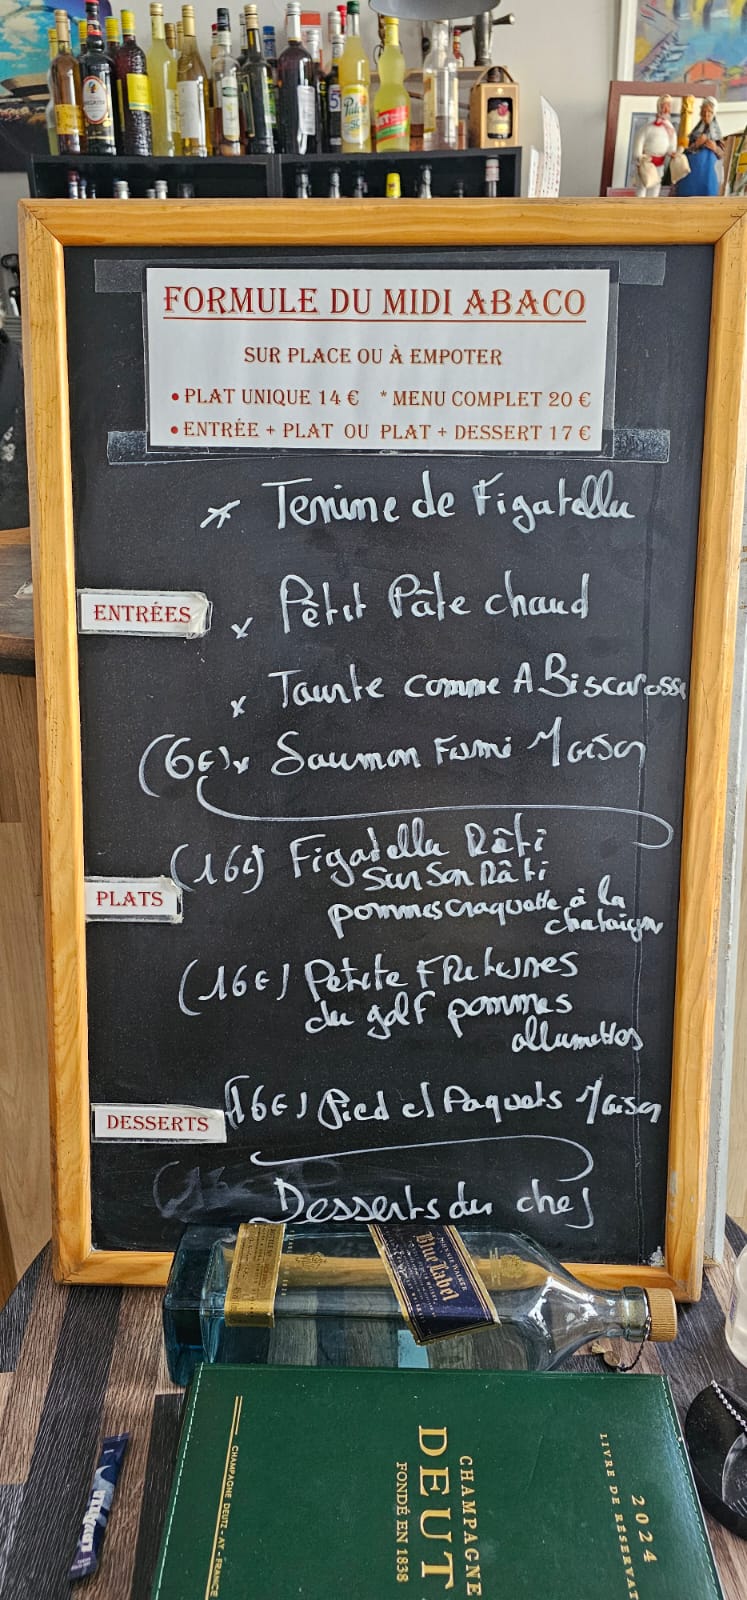 FORMULE DU MIDI ABACO
SUR PLACE OU À EMPOTER
• PLAT UNIQUE 14 € * MENU COMPLET 20 €
• ENTRÉE + PLAT OU PLAT + DESSERT 17 €
* Terrine de Figatellu
ENTRÉES
x Pêtit Pâte chaud
x Tourte comme A Biscarosse
(6€) x Saumon Fumi Maison
(16€) Figatellu Rôti
Sur Son Rôti
PLATS
pommes craquette à la
chataigne
(16€) Petite Fritures
du golf pommes
allumettes
DESSERTS
(16€) Pied et Paquets Maison
Desserts du chef
Blue Label
CHAMPAGNE
DEUT
FONDÉ EN 1838
2024
LIVRE DE RÉSERVAT
CHAMPAGNE DEUTZ - AY - FRANCE